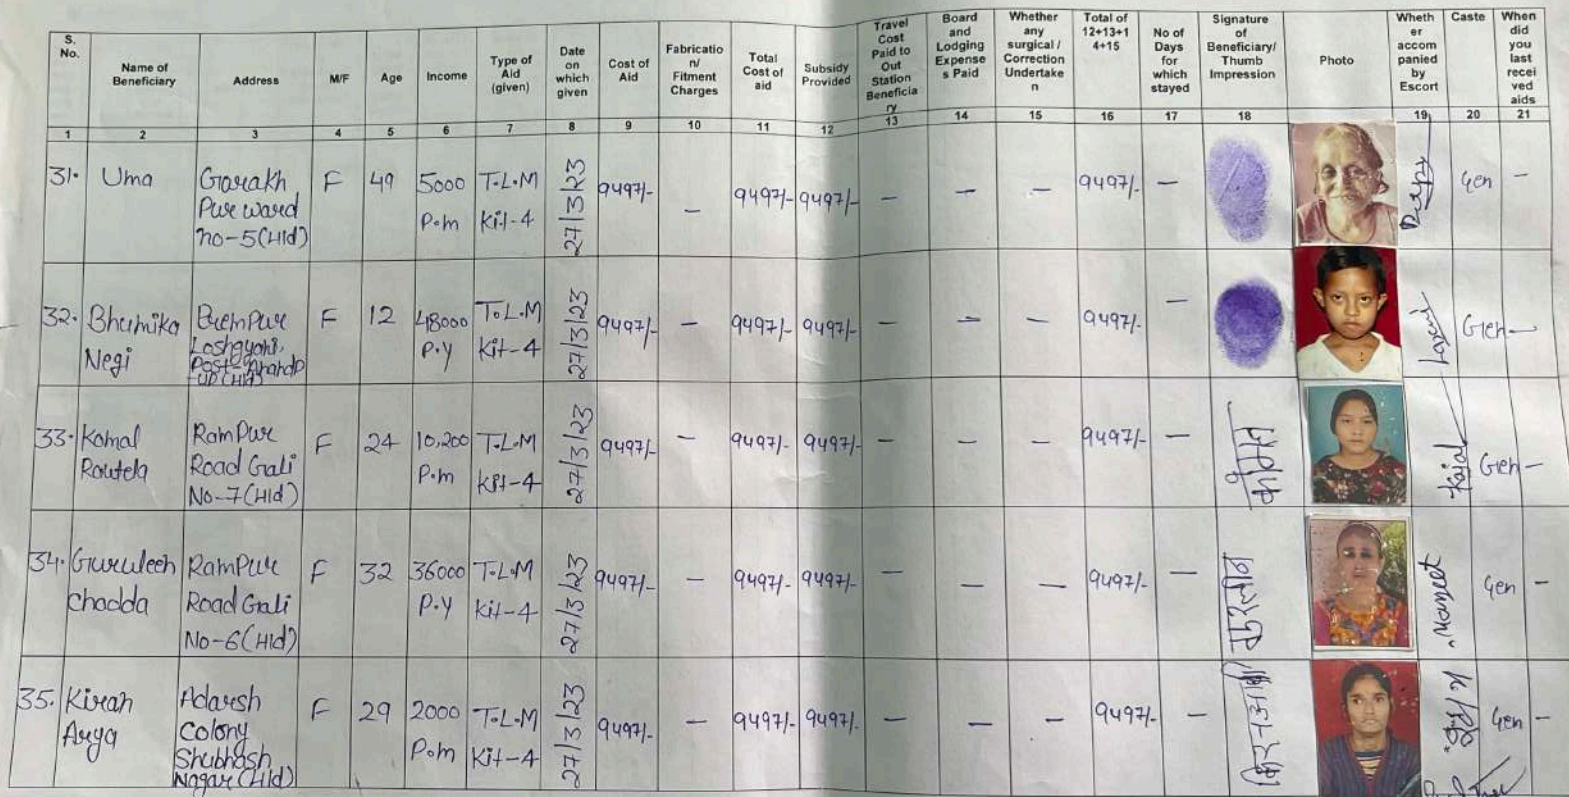 S. No. | Name of Beneficiary | Address | M/F | Age | Income | Type of Aid (given) | Date on which given | Cost of Aid | Fabricatio n/ Fitment Charges | Total Cost of aid | Subsidy Provided | Travel Cost Paid to Out Station Beneficia ry | Board and Lodging Expense s Paid | Whether any surgical / Correction Undertake n | Total of 12+13+1 4+15 | No of Days for which stayed | Signature of Beneficiary/ Thumb Impression | Photo | Wheth er accom panied by Escort | Caste | When did you last recei ved aids
1 | 2 | 3 | 4 | 5 | 6 | 7 | 8 | 9 | 10 | 11 | 12 | 13 | 14 | 15 | 16 | 17 | 18 | 19 | 20 | 21
31. | Uma | Garakh Pur ward no-5(Hld) | F | 49 | 5000 P.m | T.L.M Kit-4 | 27/3/23 | 9497/- | – | 9497/- | 9497/- | – | – | – | 9497/- | – | Gen | –
32. | Bhumika Negi | Prempur Loshgyani, Post- | F | 12 | 48000 P.y | T.L.M Kit-4 | 27/3/23 | 9497/- | – | 9497/- | 9497/- | – | – | – | 9497/- | – | Laxmi | Gen | –
33. | Komal Rautela | RamPur Road Gali No-7(Hld) | F | 24 | 10,200 P.m | T.L.M Kit-4 | 27/3/23 | 9497/- | – | 9497/- | 9497/- | – | – | – | 9497/- | – | Kajal | Gen | –
34. | chadda | RamPur Road Gali No-6(Hld) | F | 32 | 36000 P.y | T.L.M Kit-4 | 27/3/23 | 9497/- | – | 9497/- | 9497/- | – | – | – | 9497/- | – | Manjeet | Gen | –
35. | Kiran Arya | Adarsh Colony Shubhash Nagar(Hld) | F | 29 | 2000 P.m | T.L.M Kit-4 | 27/3/23 | 9497/- | – | 9497/- | 9497/- | – | – | – | 9497/- | – | Gen | –